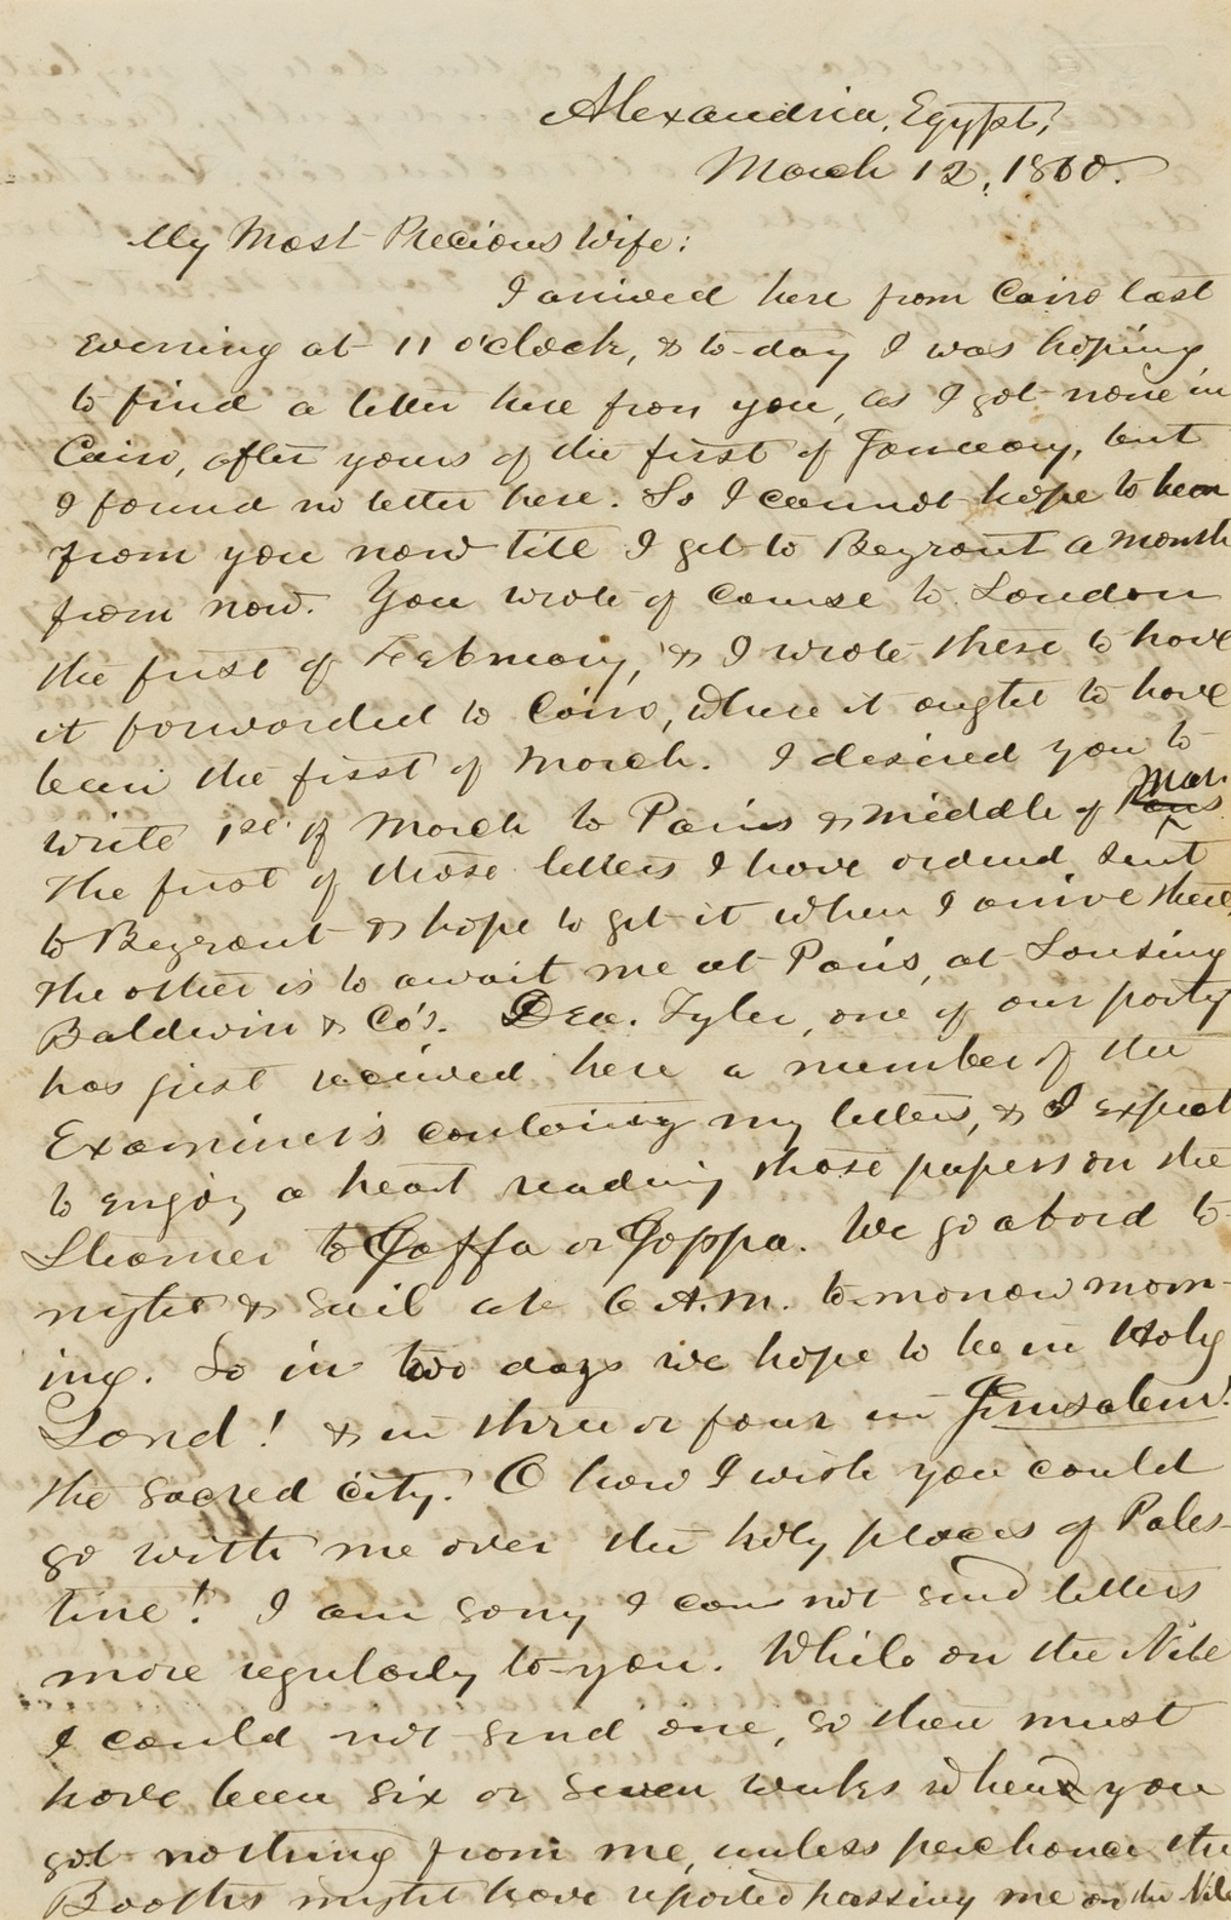 Alexandria, Egypt,
March 12, 1860.
My Most Precious Wife:
I arrived here from Cairo last
evening at 11 o'clock, & to-day I was hoping
to find a letter here from you, as I got none in
Cairo, after yours of the first of January, but
I found no letter here. So I cannot hope to hear
from you now till I get to Beyrout a month
from now. You wrote of course to London
the first of February, & I wrote there to have
it forwarded to Cairo, where it ought to have
been the first of March. I desired you to
write 1st of March to Paris & middle of Paris Mar.
The first of those letters I have ordered sent
to Beyrout & hope to get it when I arrive there
The other is to await me at Paris, at Lansing
Baldwin & Co's. Dea. Tyler, one of our party
has just received here a number of the
Examiners containing my letters, & I expect
to enjoy a heart reading those papers on the
Steamer to Jaffa or Joppa. We go abord to-
night & sail at 6 A.M. to-morrow morn-
ing. So in two days we hope to be in Holy
Land! & in three or four in Jerusalem!
the sacred city! O how I wish you could
go with me over the holy places of Pales-
tine! I am sorry I can not send letters
more regularly to you. While on the Nile
I could not send one, so there must
have been six or seven weeks when you
got nothing from me, unless perchance the
Booths might have reported passing me on the Nile